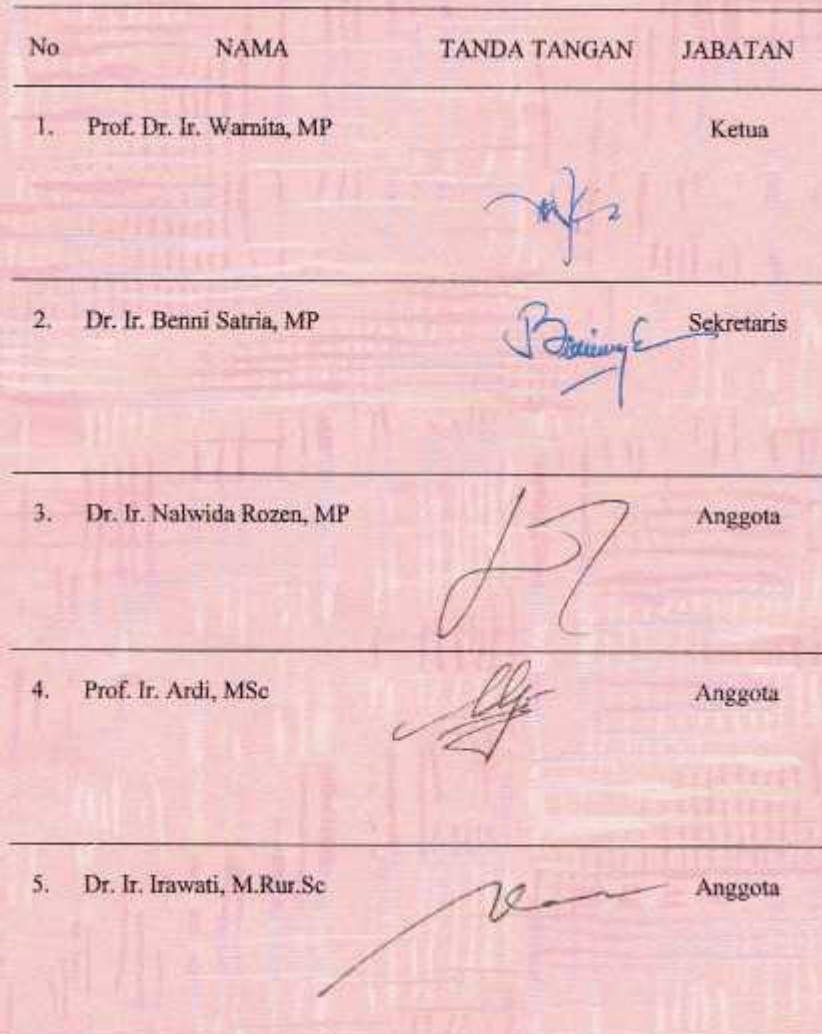 No NAMA TANDA TANGAN JABATAN
1. Prof. Dr. Ir. Warnita, MP Ketua
2. Dr. Ir. Benni Satria, MP Sekretaris
3. Dr. Ir. Nalwida Rozen, MP Anggota
4. Prof. Ir. Ardi, MSc Anggota
5. Dr. Ir. Irawati, M.Rur.Sc Anggota